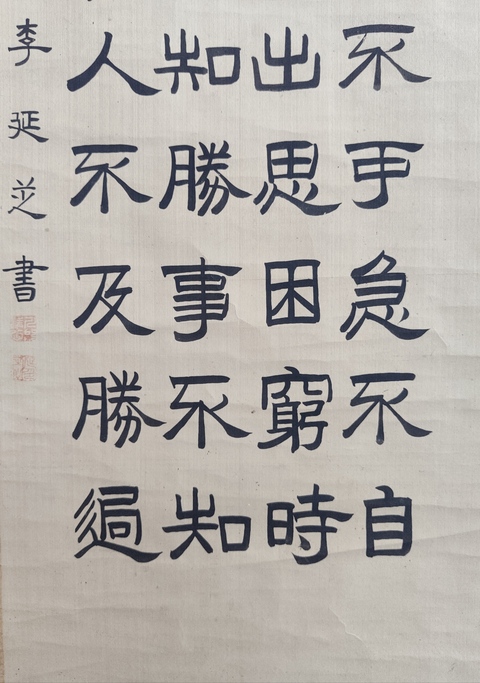 不可急不自
出思困窮時
知勝事不知
人不及勝過
李延芝書